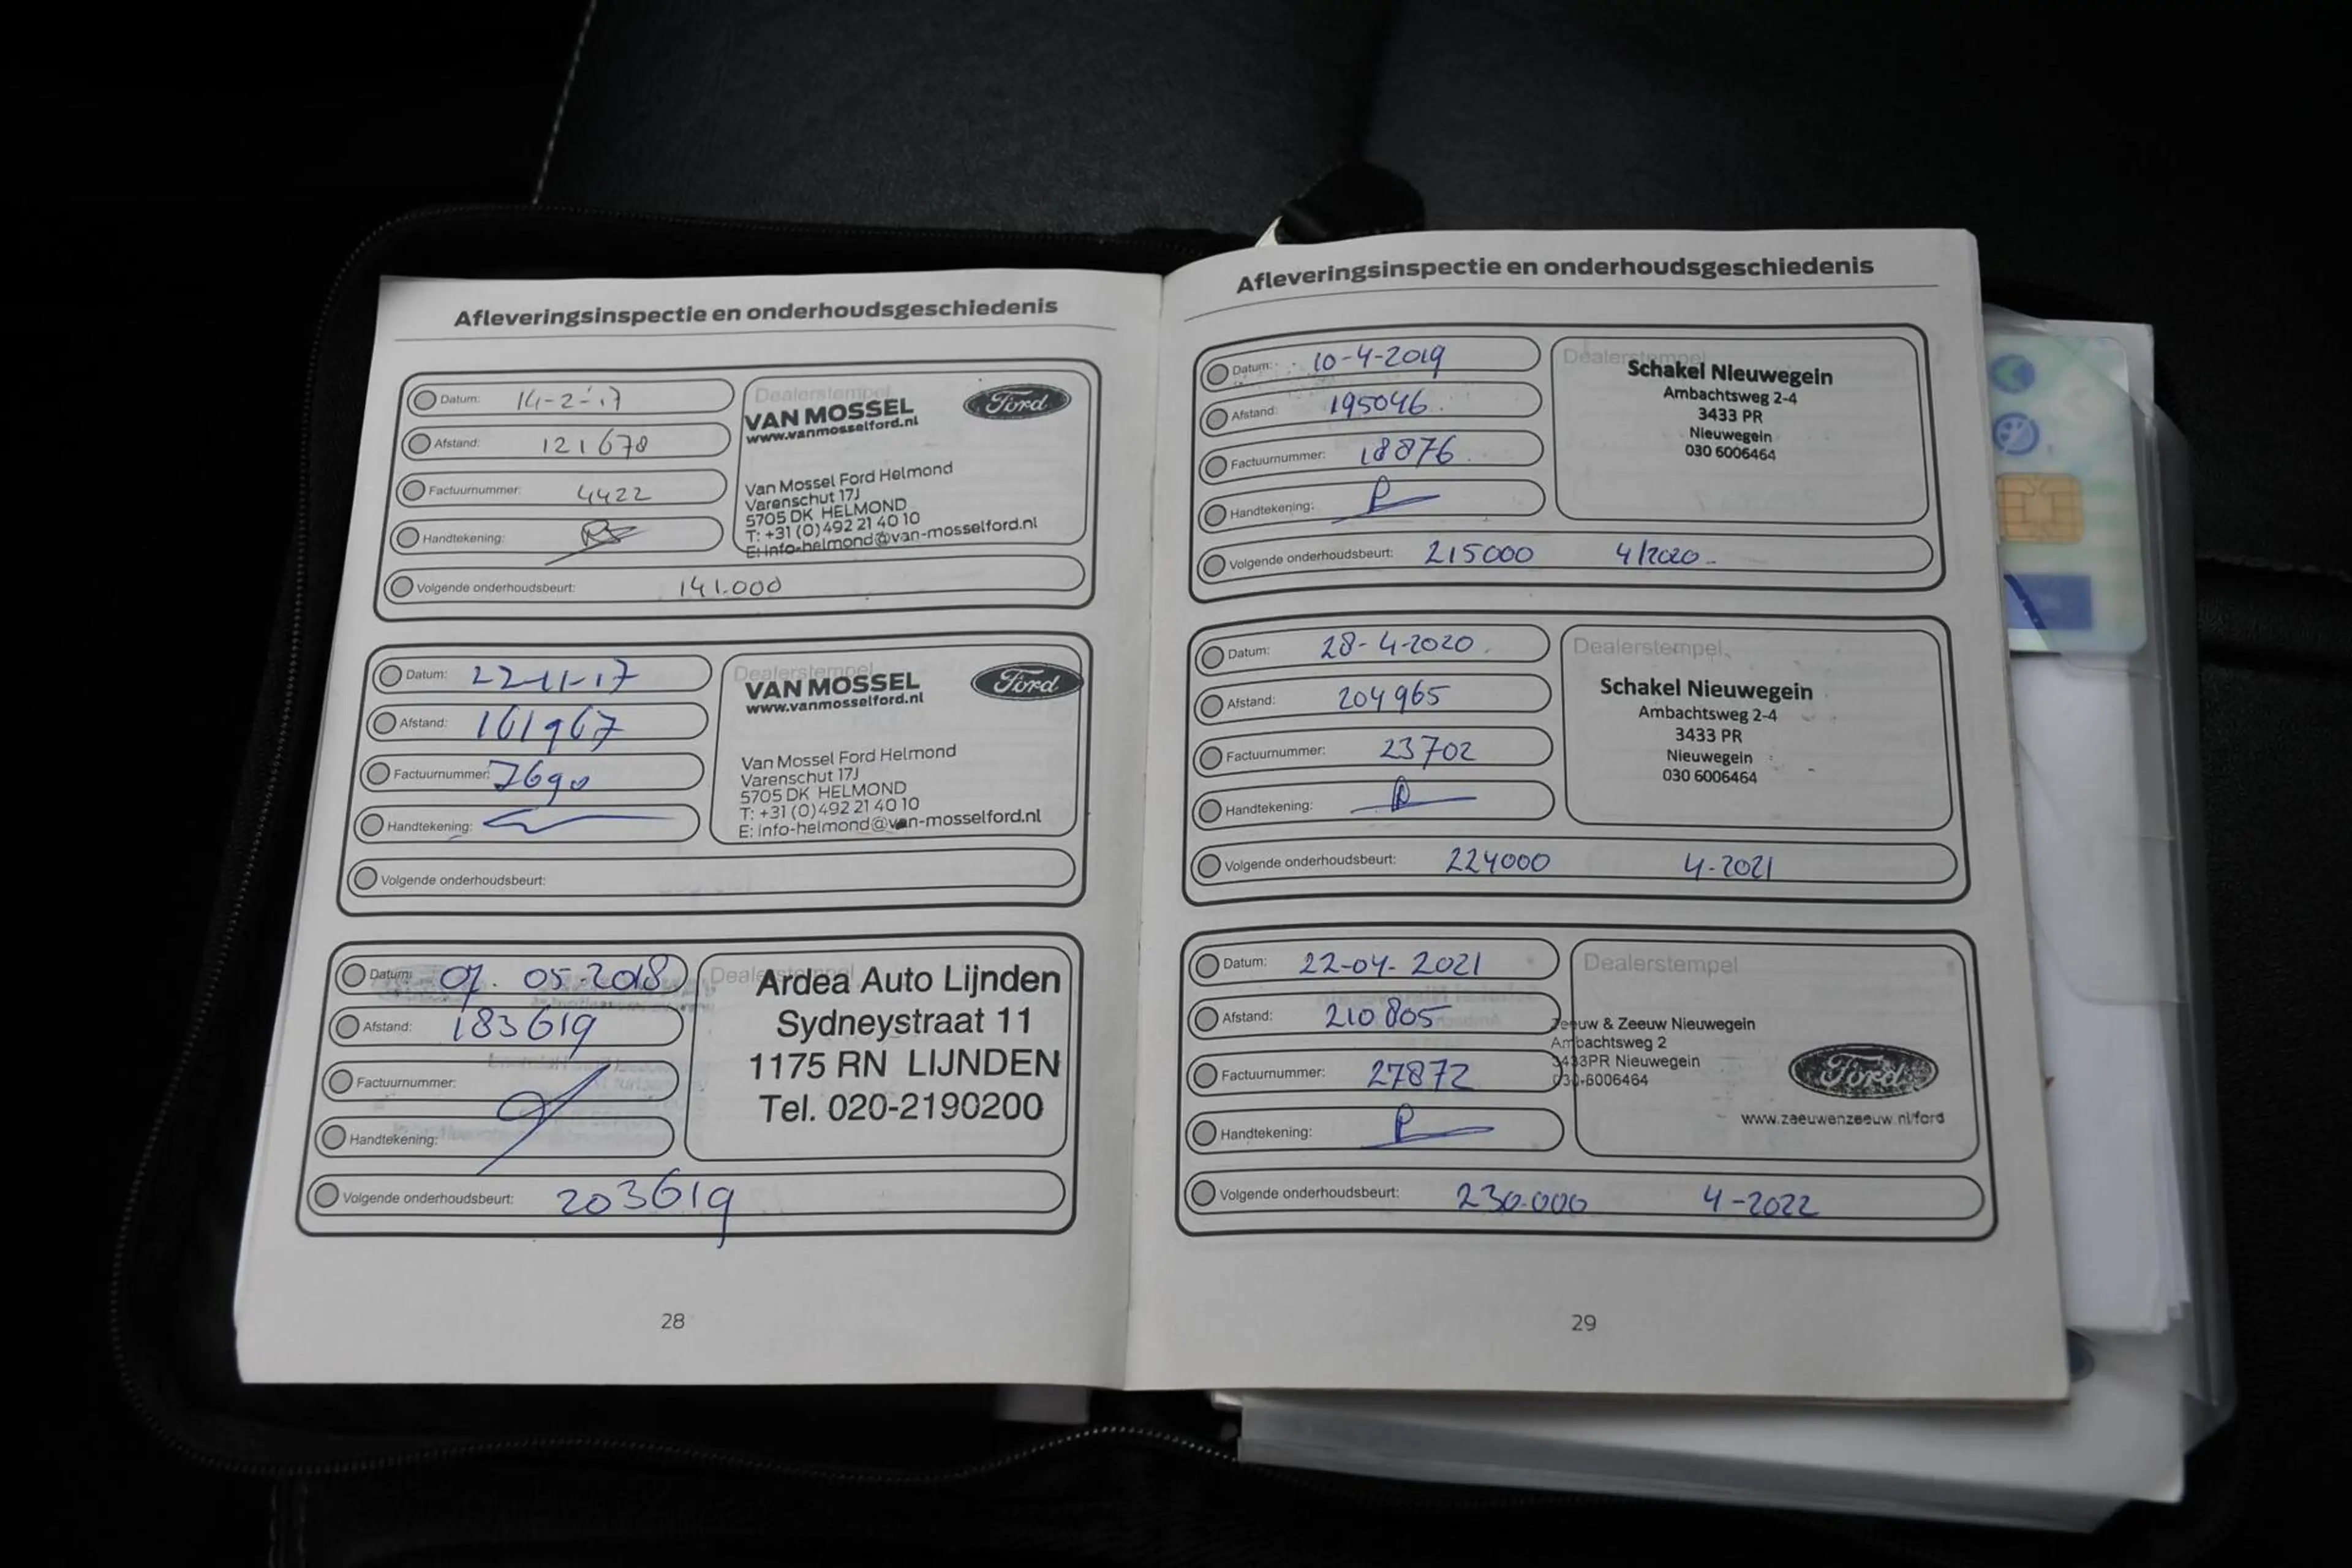 Afleveringsinspectie en onderhoudsgeschiedenis
Datum: 14-2-'17
Afstand: 121678
Factuurnummer: 4422
Handtekening:
Volgende onderhoudsbeurt: 141.000
Dealerstempel
VAN MOSSEL
www.vanmosselford.nl
Ford
Van Mossel Ford Helmond
Varenschut 17J
5705 DK HELMOND
T: +31 (0)492 21 40 10
E: info-helmond@van-mosselford.nl
Datum: 22-11-17
Afstand: 161967
Factuurnummer: 7690
Handtekening:
Volgende onderhoudsbeurt:
Dealerstempel
VAN MOSSEL
www.vanmosselford.nl
Ford
Van Mossel Ford Helmond
Varenschut 17J
5705 DK HELMOND
T: +31 (0)492 21 40 10
E: info-helmond@van-mosselford.nl
Datum: 07. 05-2018
Afstand: 183619
Factuurnummer:
Handtekening:
Volgende onderhoudsbeurt: 203619
Dealerstempel
Ardea Auto Lijnden
Sydneystraat 11
1175 RN LIJNDEN
Tel. 020-2190200
28
Afleveringsinspectie en onderhoudsgeschiedenis
Datum: 10-4-2019
Afstand: 195046
Factuurnummer: 18876
Handtekening:
Volgende onderhoudsbeurt: 215000 4/2020
Dealerstempel
Schakel Nieuwegein
Ambachtsweg 2-4
3433 PR
Nieuwegein
030 6006464
Datum: 28-4-2020
Afstand: 204965
Factuurnummer: 23702
Handtekening:
Volgende onderhoudsbeurt: 224000 4-2021
Dealerstempel
Schakel Nieuwegein
Ambachtsweg 2-4
3433 PR
Nieuwegein
030 6006464
Datum: 22-04-2021
Afstand: 210805
Factuurnummer: 27872
Handtekening:
Volgende onderhoudsbeurt: 230.000 4-2022
Dealerstempel
Zeeuw & Zeeuw Nieuwegein
Ambachtsweg 2
3433PR Nieuwegein
030-6006464
Ford
www.zeeuwenzeeuw.nl/ford
29